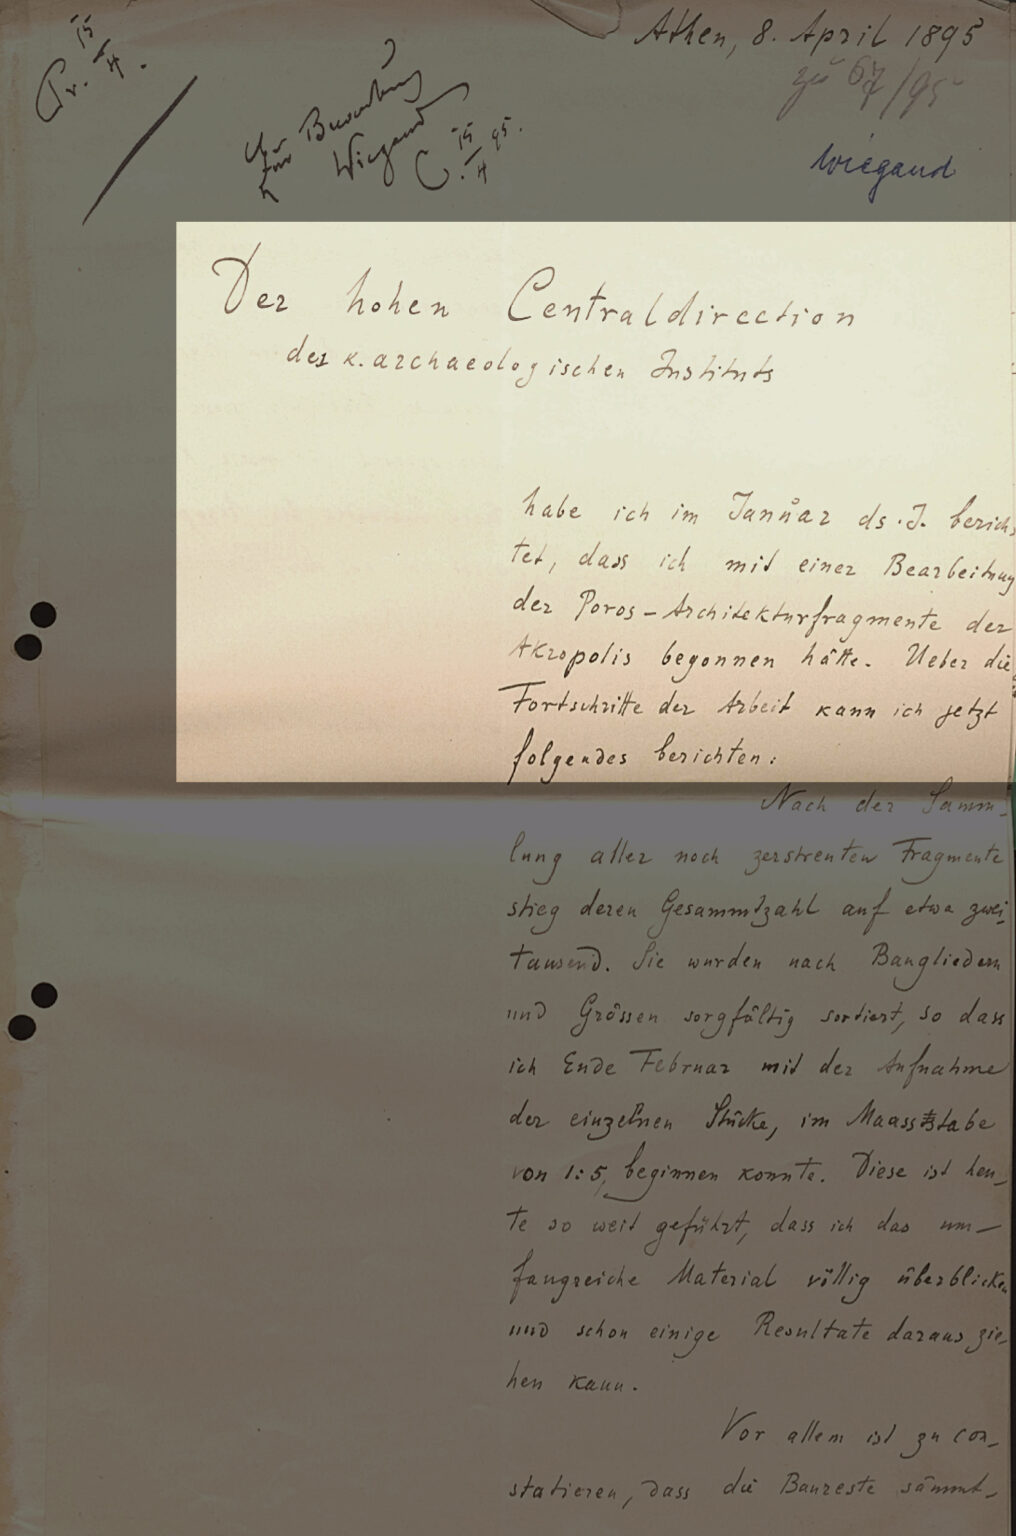 Athen, 8. April 1895
zu 67/95
Pr. 15/4.
Wiegand
C. 15/4 95.
Wiegand
Der hohen Centraldirection
des k. archaeologischen Instituts
habe ich im Januar ds. J. berich-
tet, dass ich mit einer Bearbeitung
der Poros-Architekturfragmente der
Akropolis begonnen hätte. Ueber die
Fortschritte der Arbeit kann ich jetzt
folgendes berichten:
Nach der Samm-
lung aller noch zerstreuten Fragmente
stieg deren Gesammtzahl auf etwa zwei-
tausend. Sie wurden nach Baugliedern
und Grössen sorgfältig sortiert, so dass
ich Ende Februar mit der Aufnahme
der einzelnen Stücke, im Maassstabe
von 1:5, beginnen konnte. Diese ist heu-
te so weit geführt, dass ich das um-
fangreiche Material völlig überblicken
und schon einige Resultate daraus zie-
hen kann.
Vor allem ist zu con-
statieren, dass die Baureste sämmt-